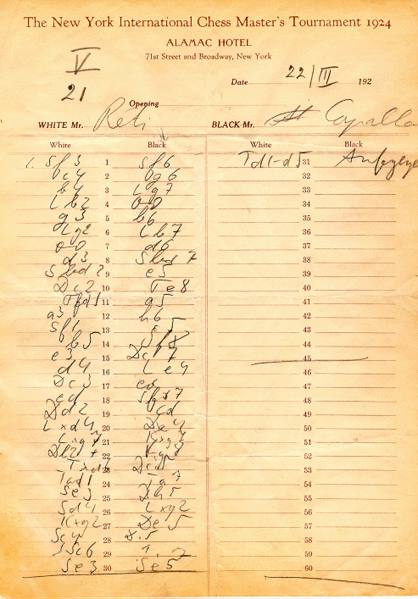 The New York International Chess Master's Tournament 1924
ALAMAC HOTEL
71st Street and Broadway, New York
V
21
Date 22/III 192
Opening
WHITE Mr. Reti BLACK Mr. Capabla
White Black White Black
1. Sf3 1 Sf6 Td1-d5 31 Aufgege
c4 2 g6 32
b4 3 Lg7 33
Lb2 4 0-0 34
g3 5 b6 35
Lg2 6 Lb7 36
0-0 7 d6 37
d3 8 Sbd7 38
Sbd2 9 e5 39
Dc2 10 Te8 40
Tfd1 11 a5 41
a3 12 h6 42
Sf1 13 c5 43
b5 14 Sf8 44
e3 15 Dc7 45
d4 16 Le4 46
Dc3 17 ed 47
ed 18 48
Dd2 19 cd 49
Lxd4 20 De4 50
Lxg7 21 Kxg7 51
Db2+ 22 Kg8 52
Txd6 23 Dc5 53
Tad1 24 Ta7 54
Se3 25 Dh5 55
Sd4 26 Lxg2 56
Kxg2 27 De5 57
Sc4 28 Dc5 58
Sc6 29 59
Se3 30 Se5 60